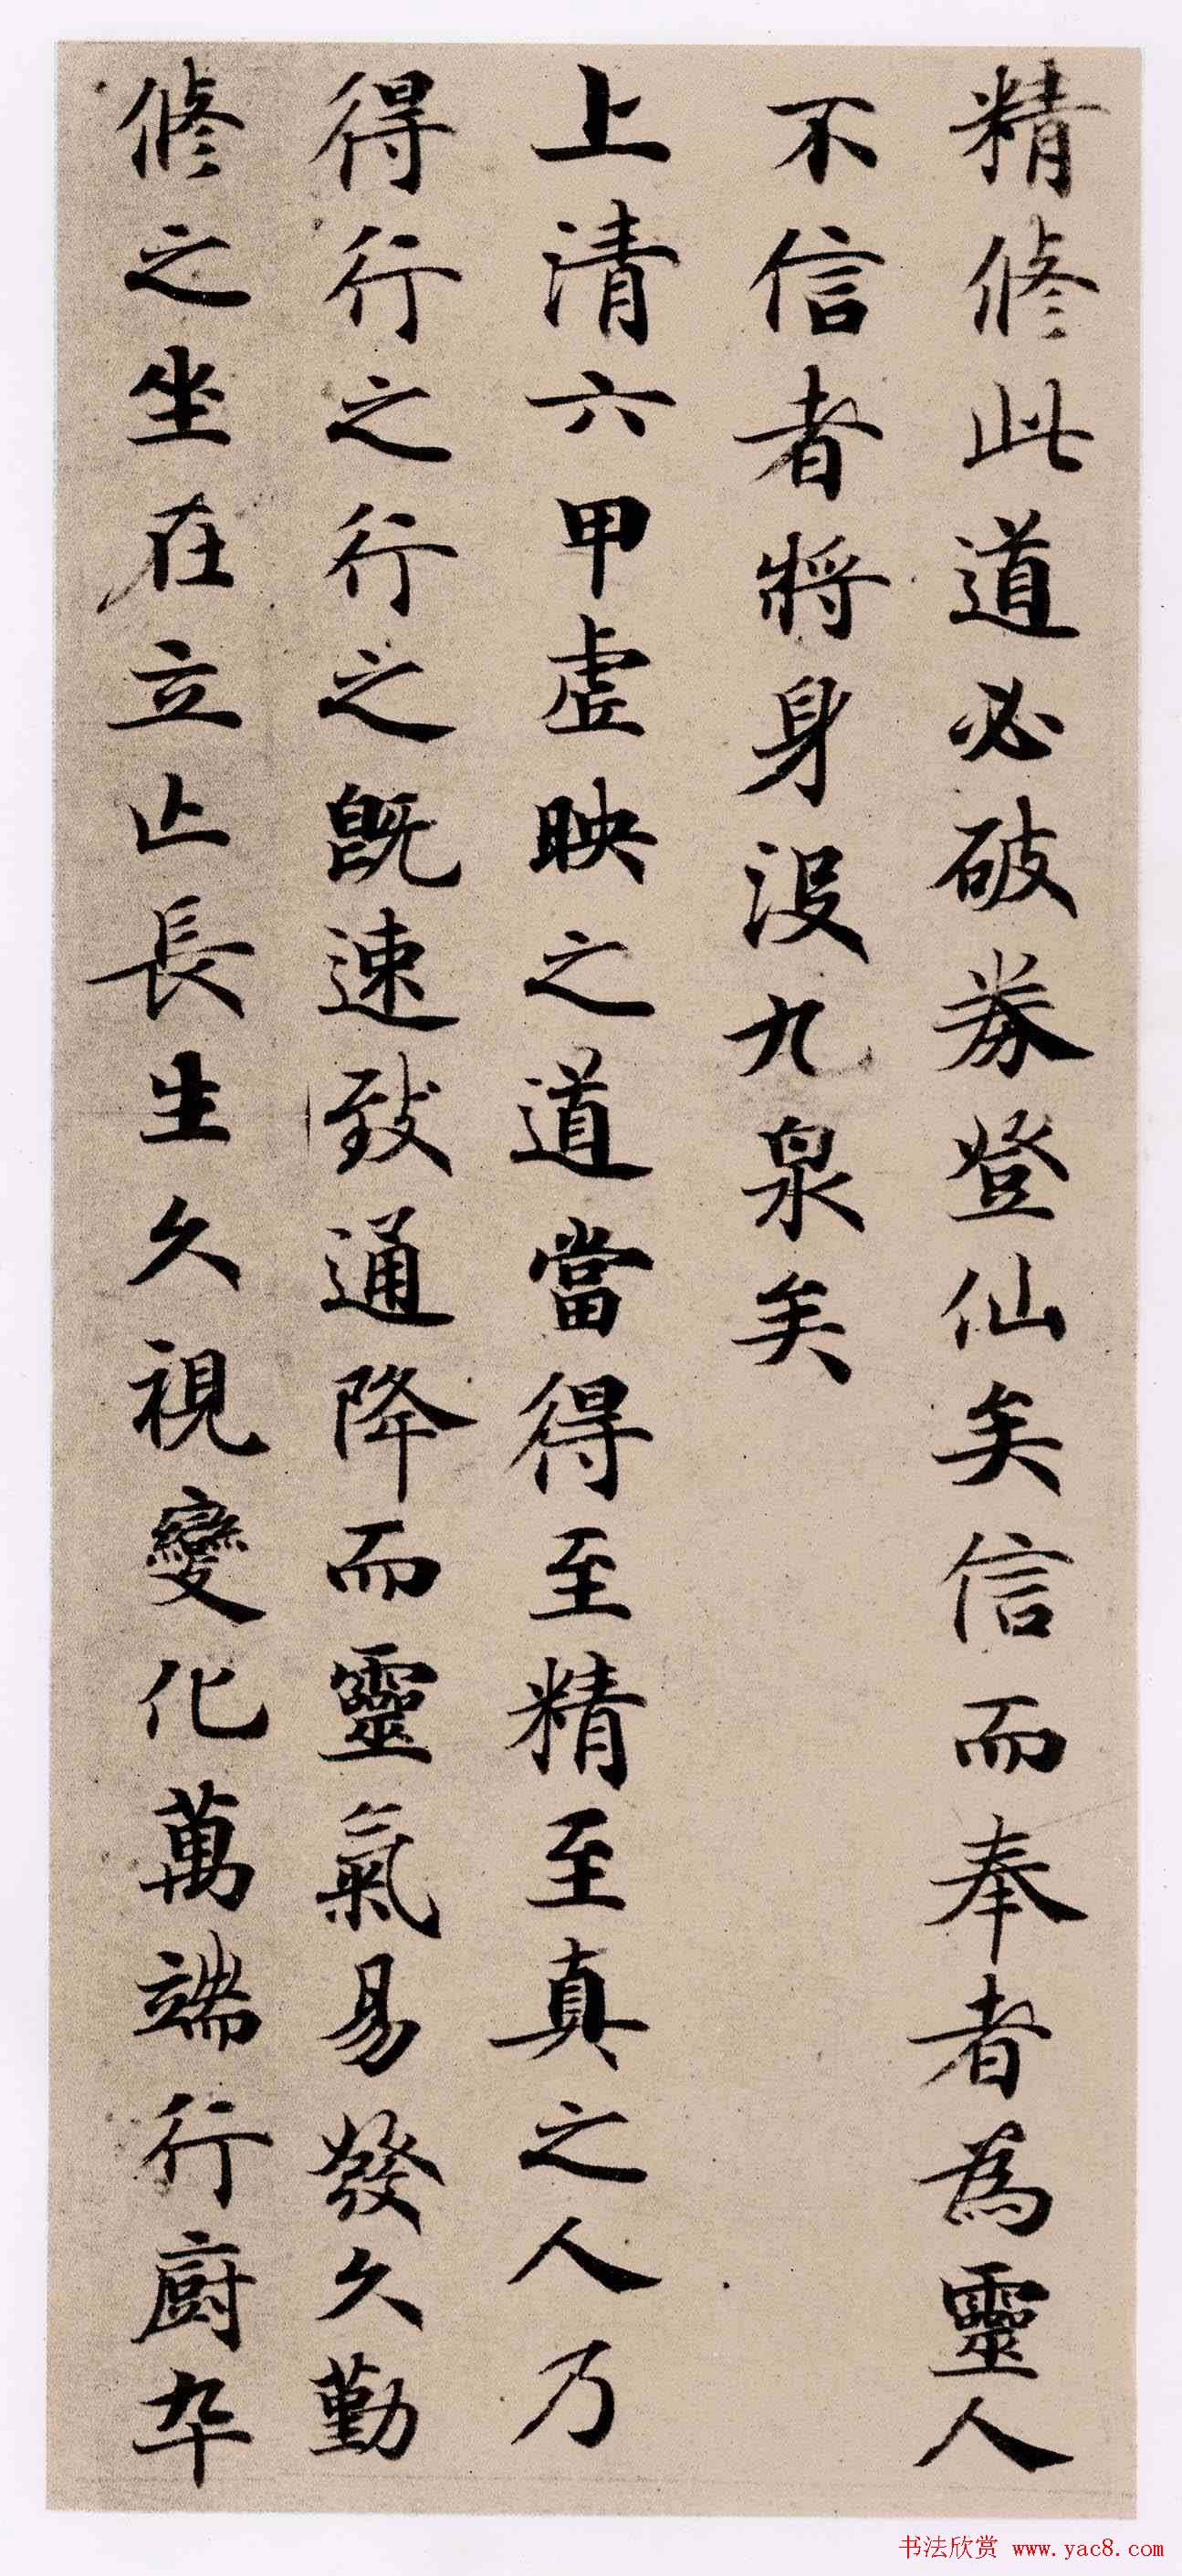 精脩此道必破券登仙矣信而奉者為靈人
不信者將身沒九泉矣
上清六甲虛映之道當得至精至真之人乃
得行之行之既速致通降而靈氣易發久勤
脩之坐在立亡長生久視變化萬端行廚卒
书法欣赏 www.yac8.com